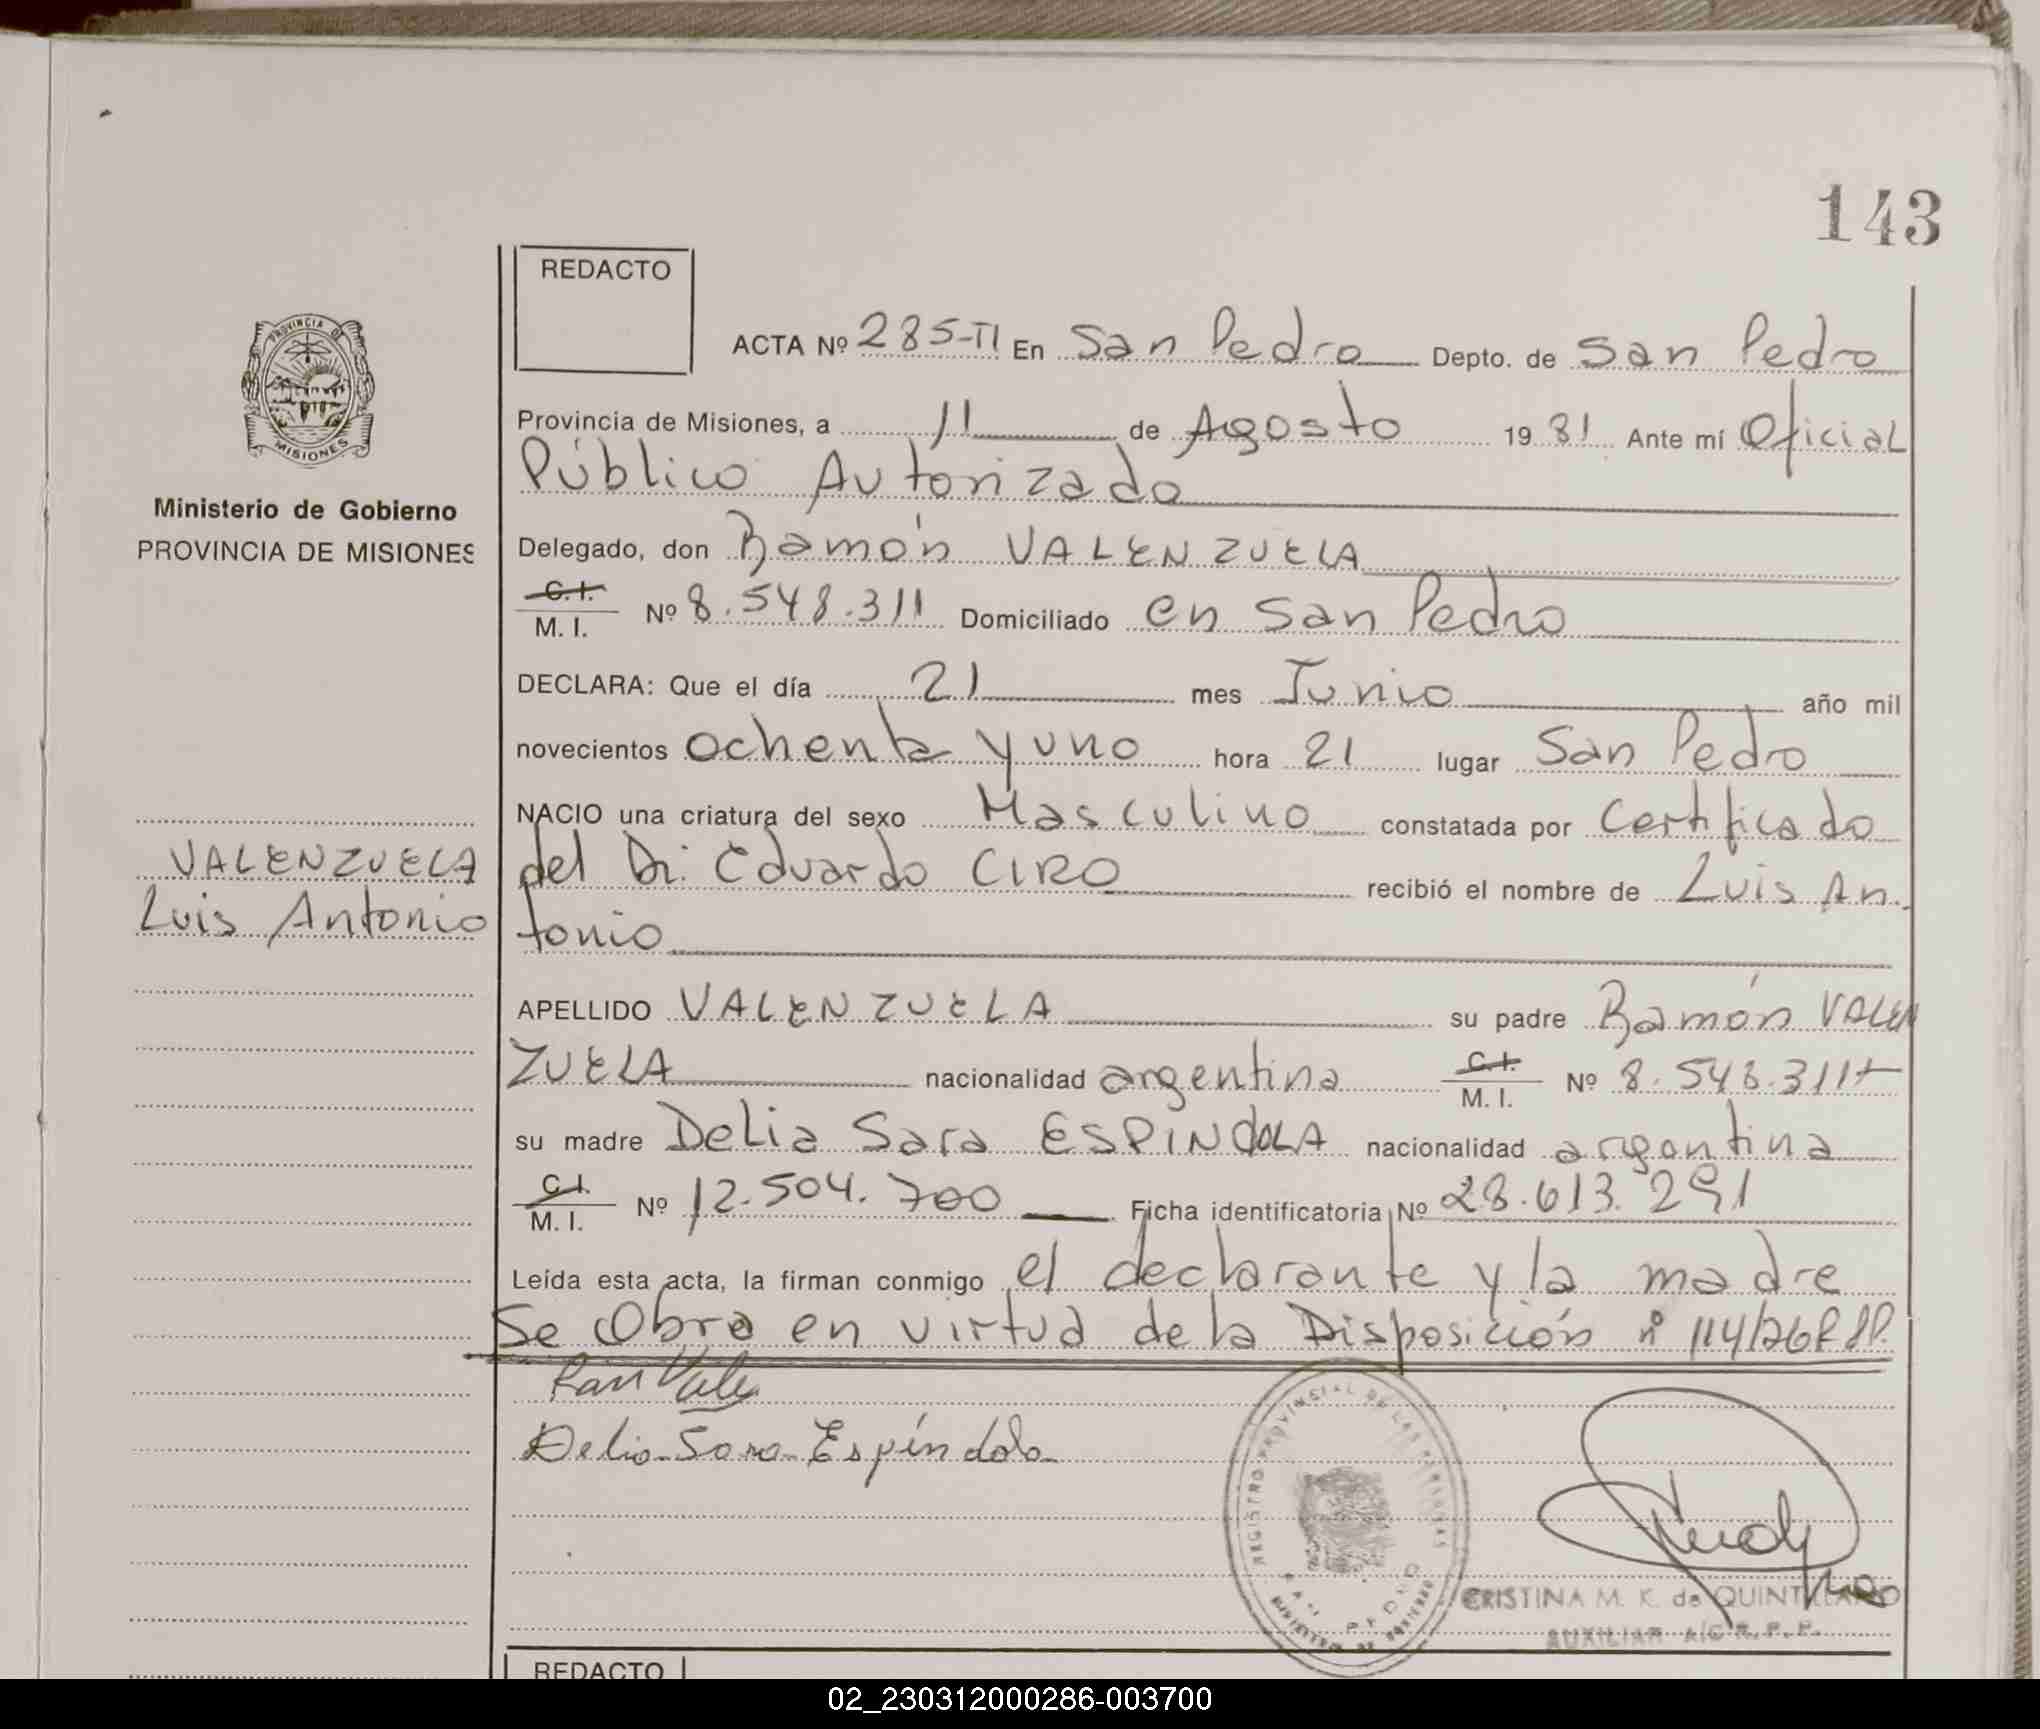 143
REDACTO
ACTA Nº 285-TI En San Pedro Depto. de San Pedro
Provincia de Misiones, a 11 de Agosto 1981 Ante mí Oficial
Público Autorizado
PROVINCIA DE
MISIONES
Ministerio de Gobierno
PROVINCIA DE MISIONES
Delegado, don Ramón VALENZUELA
C.I.
M. I. Nº 8.548.311 Domiciliado en San Pedro
DECLARA: Que el día 21 mes Junio año mil
novecientos ochenta y uno hora 21 lugar San Pedro
NACIO una criatura del sexo Masculino constatada por Certificado
del Dr. Eduardo CIRO recibió el nombre de Luis An-
tonio
VALENZUELA
Luis Antonio
APELLIDO VALENZUELA su padre Ramón VALEN
ZUELA nacionalidad argentina C.I.
M. I. Nº 8.548.311
su madre Delia Sara ESPINdOLA nacionalidad argentina
C.I.
M. I. Nº 12.504.700 Ficha identificatoria Nº 28.613.291
Leída esta acta, la firman conmigo el declarante y la madre
Se Obra en virtud de la Disposición nº 114/76
Delia Sara Espíndola
REGISTRO PROVINCIAL DE LAS PERSONAS
SAN PEDRO
MINISTERIO DE GOBIERNO
CRISTINA M. K. de QUINTANA
AUXILIAR A/C R. P. P.
REDACTO
02_230312000286-003700